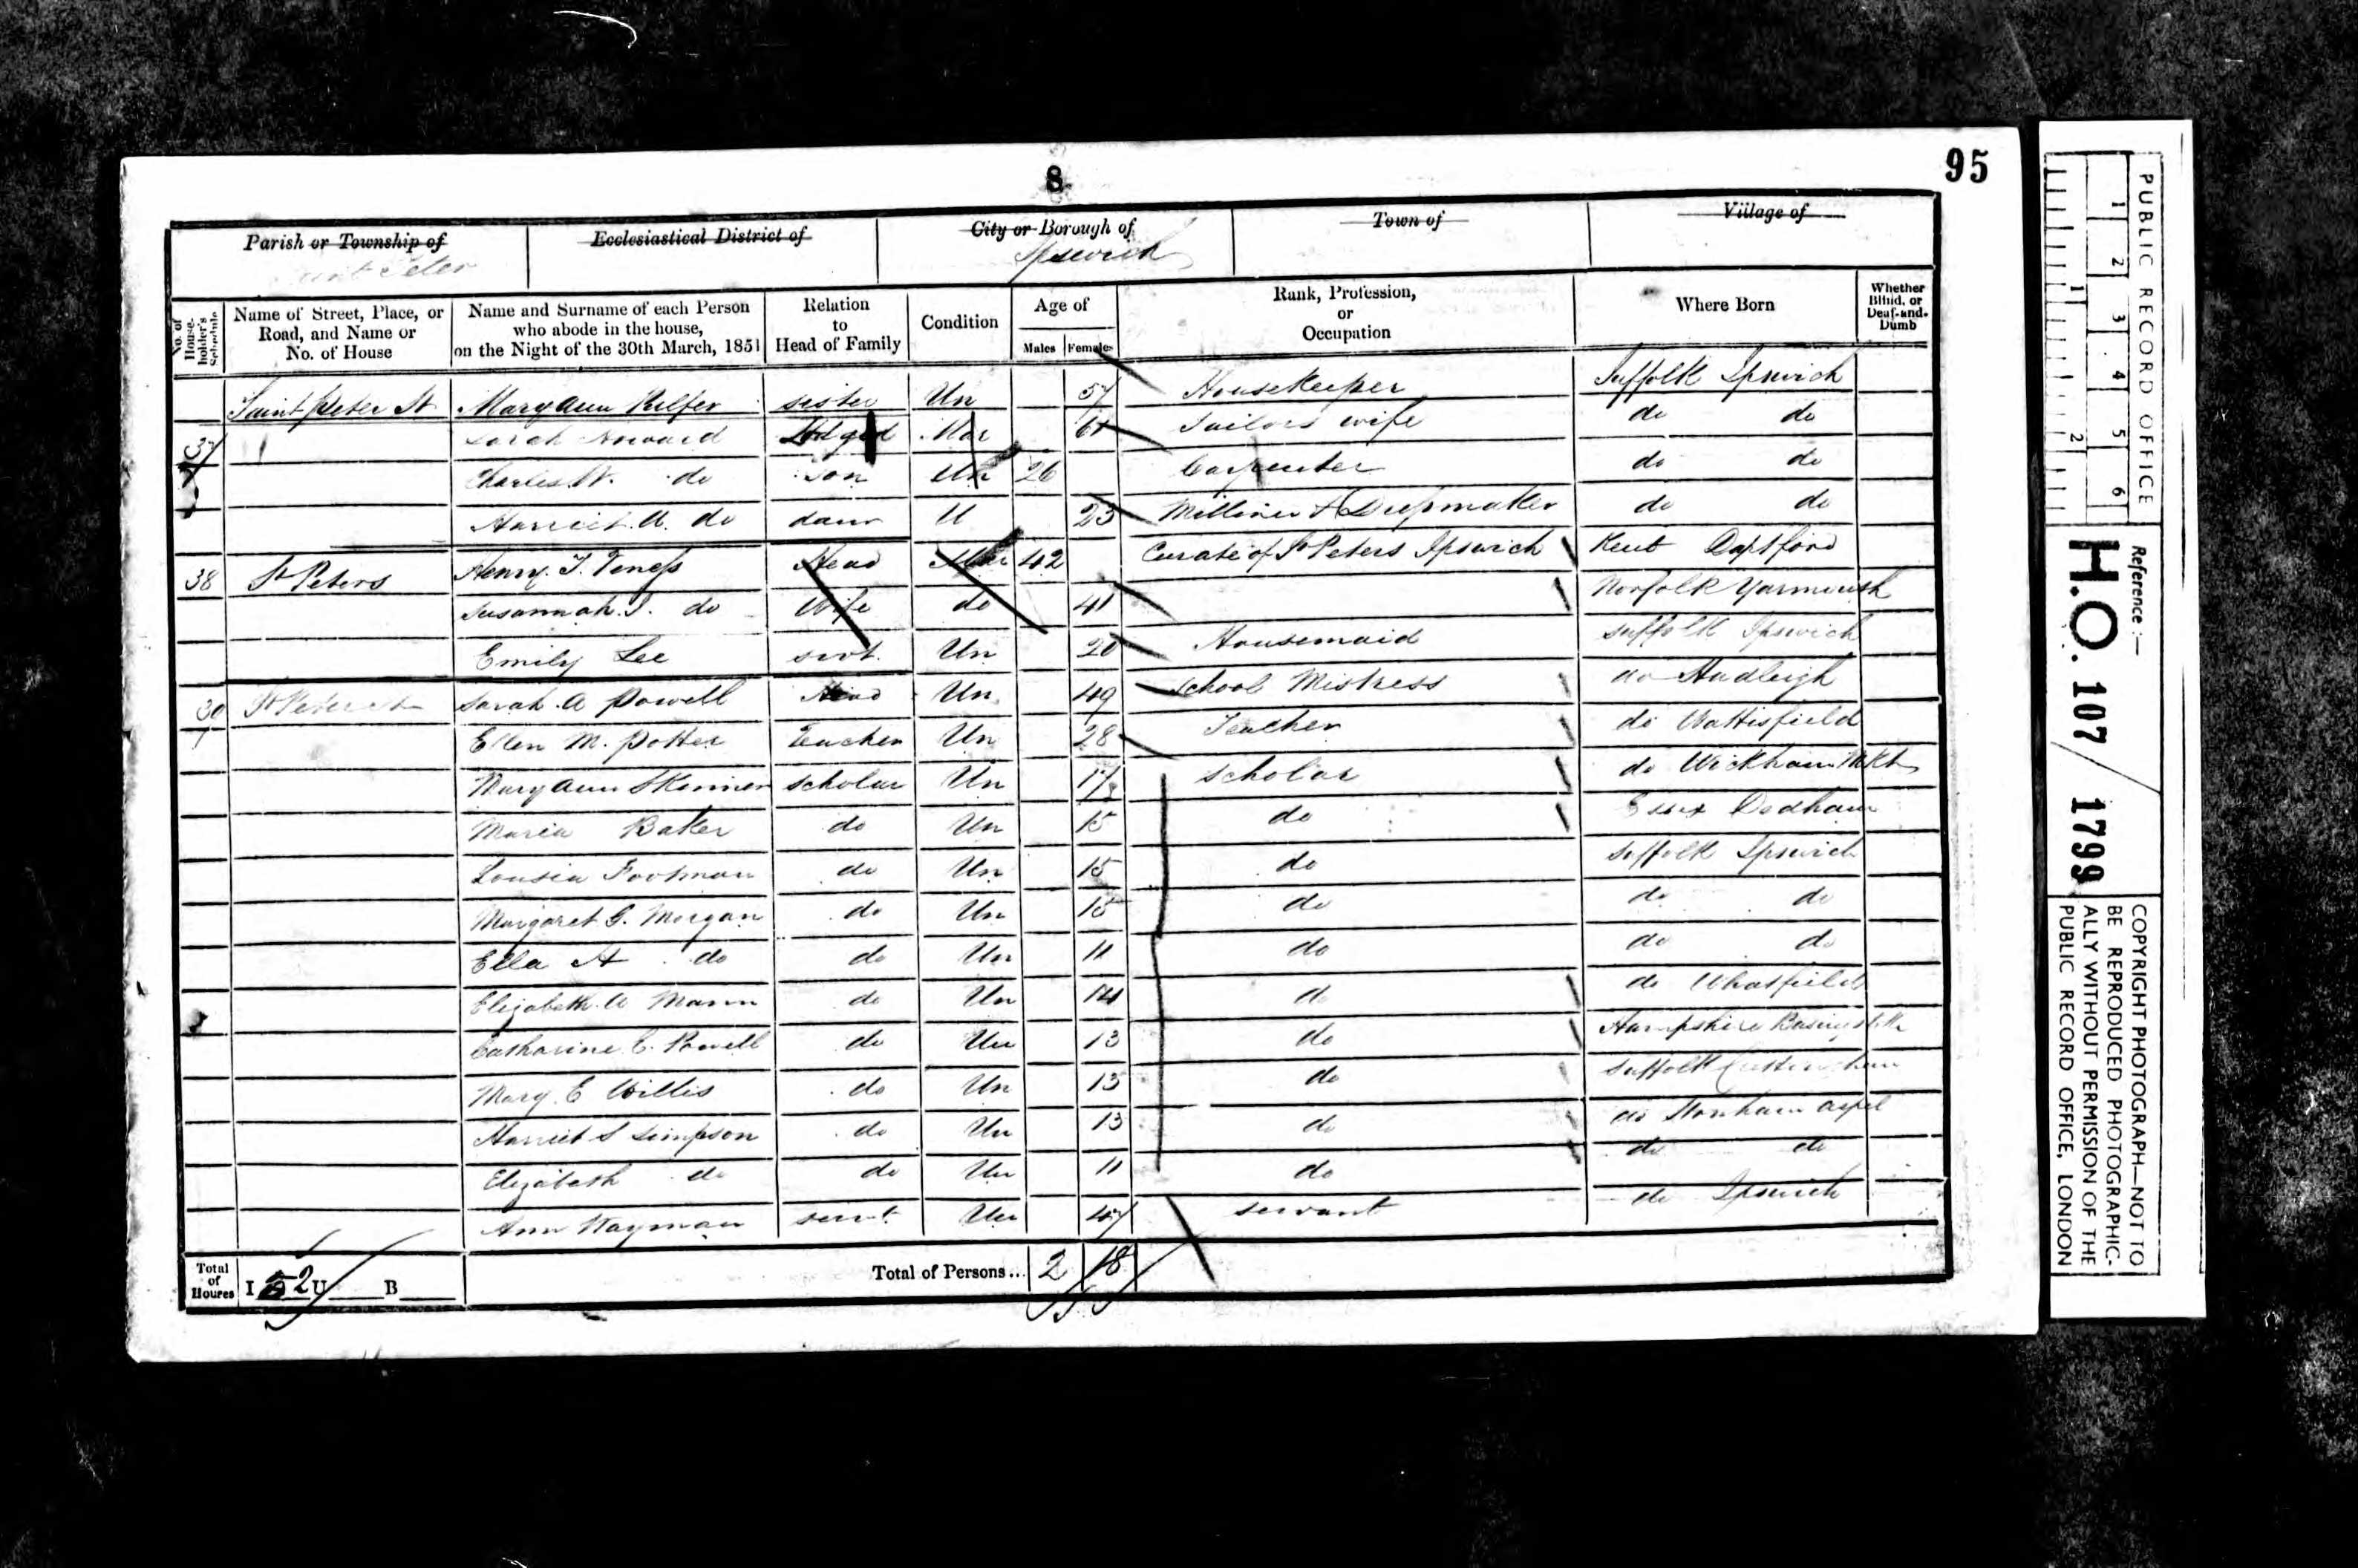 8
95
Parish or Township of
Saint Peter
Ecclesiastical District of
City or Borough of
Ipswich
Town of
Village of
No. of House-holder's Schedule
Name of Street, Place, or Road, and Name or No. of House
Name and Surname of each Person who abode in the house, on the Night of the 30th March, 1851
Relation to Head of Family
Condition
Age of
Males Females
Rank, Profession, or Occupation
Where Born
Whether Blind, or Deaf-and-Dumb
Saint Peter St Mary Ann sister Un 57 Housekeeper Suffolk Ipswich
37 Sarah Howard Lodger Mar 61 Tailors wife do do
Charles W. do Son Un 26 Carpenter do do
Harriet A. do daur U 23 Milliner & Dressmaker do do
38 St Peters Henry T. Head Mar 42 Curate of St Peters Ipswich Kent Deptford
Susannah J. do Wife do 41 Norfolk Yarmouth
Emily Lee servt. Un 20 Housemaid Suffolk Ipswich
39 St Peter St Sarah A Powell Head Un 49 School Mistress do Hadleigh
Ellen M. Potter Teacher Un 28 Teacher do Wattisfield
Mary Ann Skinner scholar Un 17 scholar do Wickham Mkt
Maria Baker do Un 15 do Essex Dedham
Lousia Footman do Un 15 do Suffolk Ipswich
Margaret G. Morgan do Un 15 do do do
Ella A do do Un 11 do do do
Elizabeth A Mann do Un 14 do do Whatfield
Catharine C. Powell do Un 13 do Hampshire Basingstoke
Mary E Willis do Un 13 do Suffolk
Harriet S Simpson do Un 13 do do Stonham Aspel
Elizabeth do do Un 11 do do do
Ann Wayman servt. Un 47 servant do Ipswich
Total of Houses I 2 U B
Total of Persons... 2 18
PUBLIC RECORD OFFICE
1 2 3 4 5 6
1 2
Reference :—
H.O. 107 / 1799
COPYRIGHT PHOTOGRAPH—NOT TO
BE REPRODUCED PHOTOGRAPHIC-
ALLY WITHOUT PERMISSION OF THE
PUBLIC RECORD OFFICE, LONDON